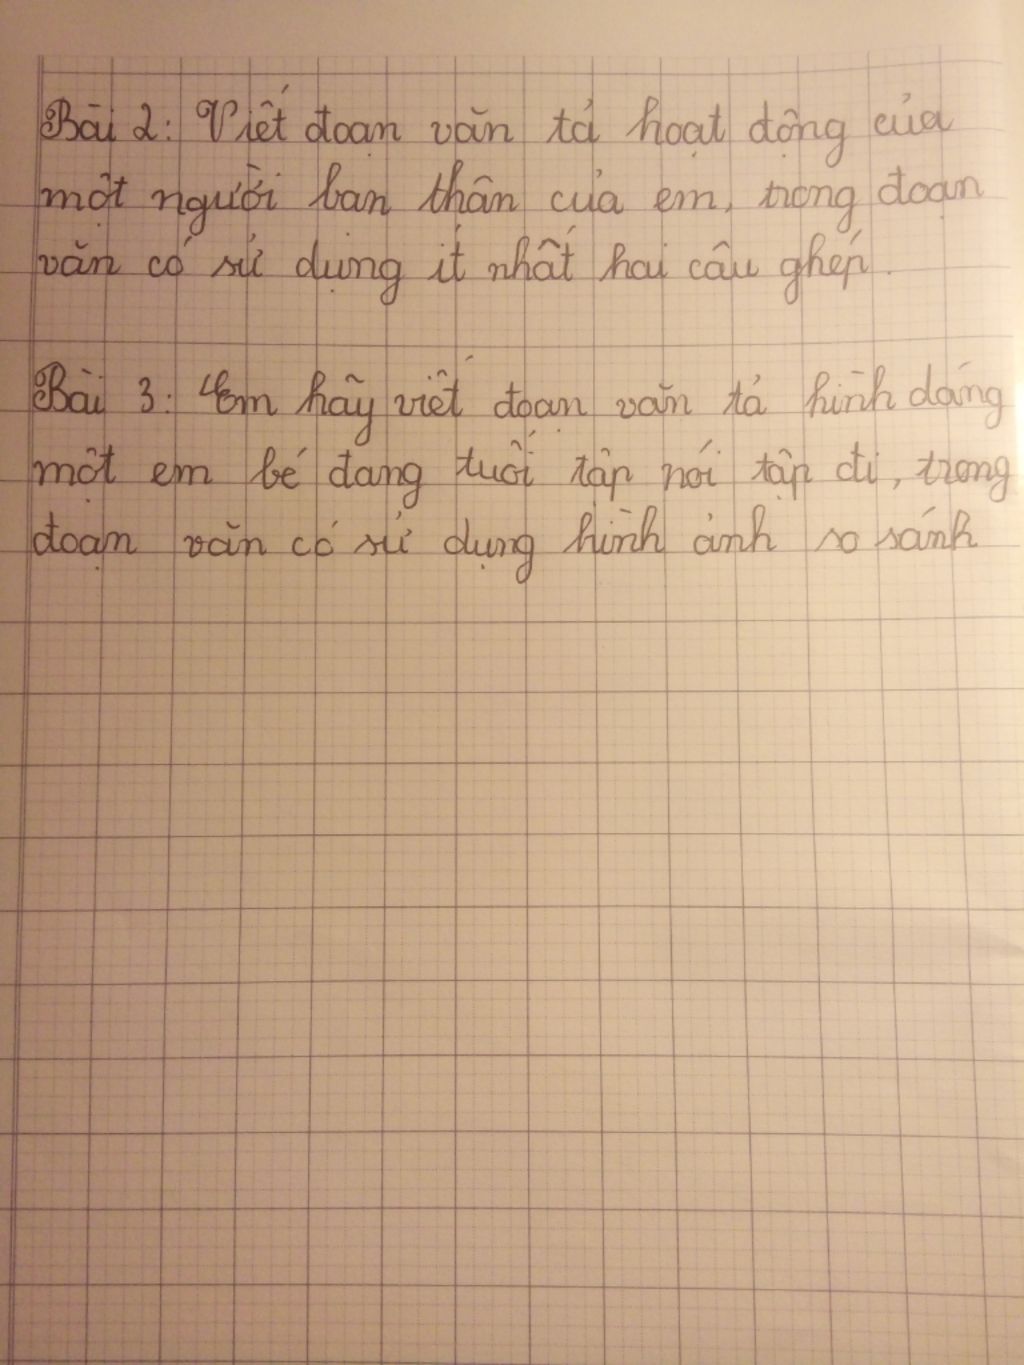 Bài 2: Viết đoạn văn tả hoạt động của
một người bạn thân của em, trong đoạn
văn có sử dụng ít nhất hai câu ghép.
Bài 3: Em hãy viết đoạn văn tả hình dáng
một em bé đang tuổi tập nói tập đi, trong
đoạn văn có sử dụng hình ảnh so sánh